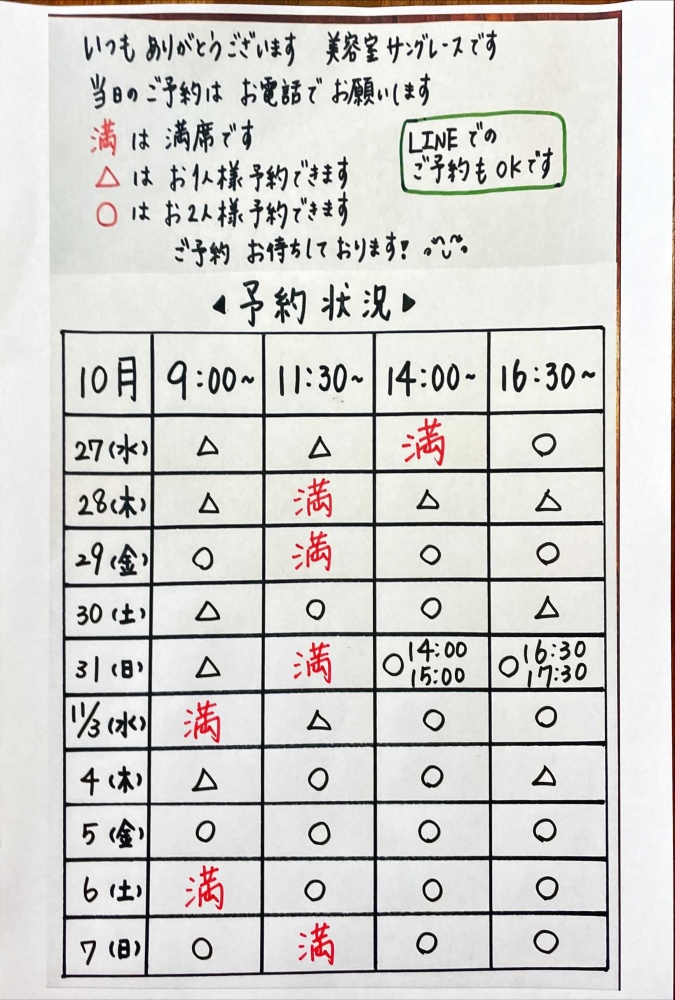 いつも ありがとうございます 美容室 サングレースです
当日の ご予約は お電話で お願いします
満 は 満席です
△ は お1人様 予約できます
○ は お2人様 予約できます
LINEでの
ご予約も OKです
ご予約 お待ちしております!
◀予約状況▶
10月 9:00~ 11:30~ 14:00~ 16:30~
27(水) △ △ 満 ○
28(木) △ 満 △ △
29(金) ○ 満 ○ ○
30(土) △ ○ ○ △
31(日) △ 満 ○14:00 15:00 ○16:30 17:30
11/3(水) 満 △ ○ ○
4(木) △ ○ ○ △
5(金) ○ ○ ○ ○
6(土) 満 ○ ○ ○
7(日) ○ 満 ○ ○